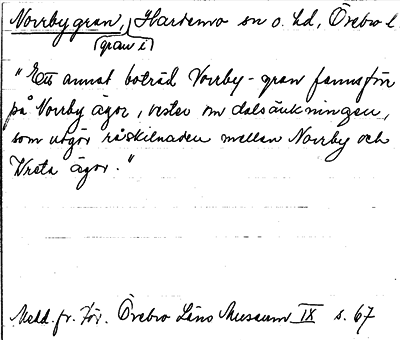 Norrby gran, Hardemo sn o. hd, Örebro l.
(gran i)
"Ett annat boträd Norrby-gran fanns förr
på Norrby ägor, vester om dalsänkningen,
som utgör råskilnaden mellan Norrby och
Vreta ägor."
Medd. fr. För. Örebro Läns Museum IX s. 67